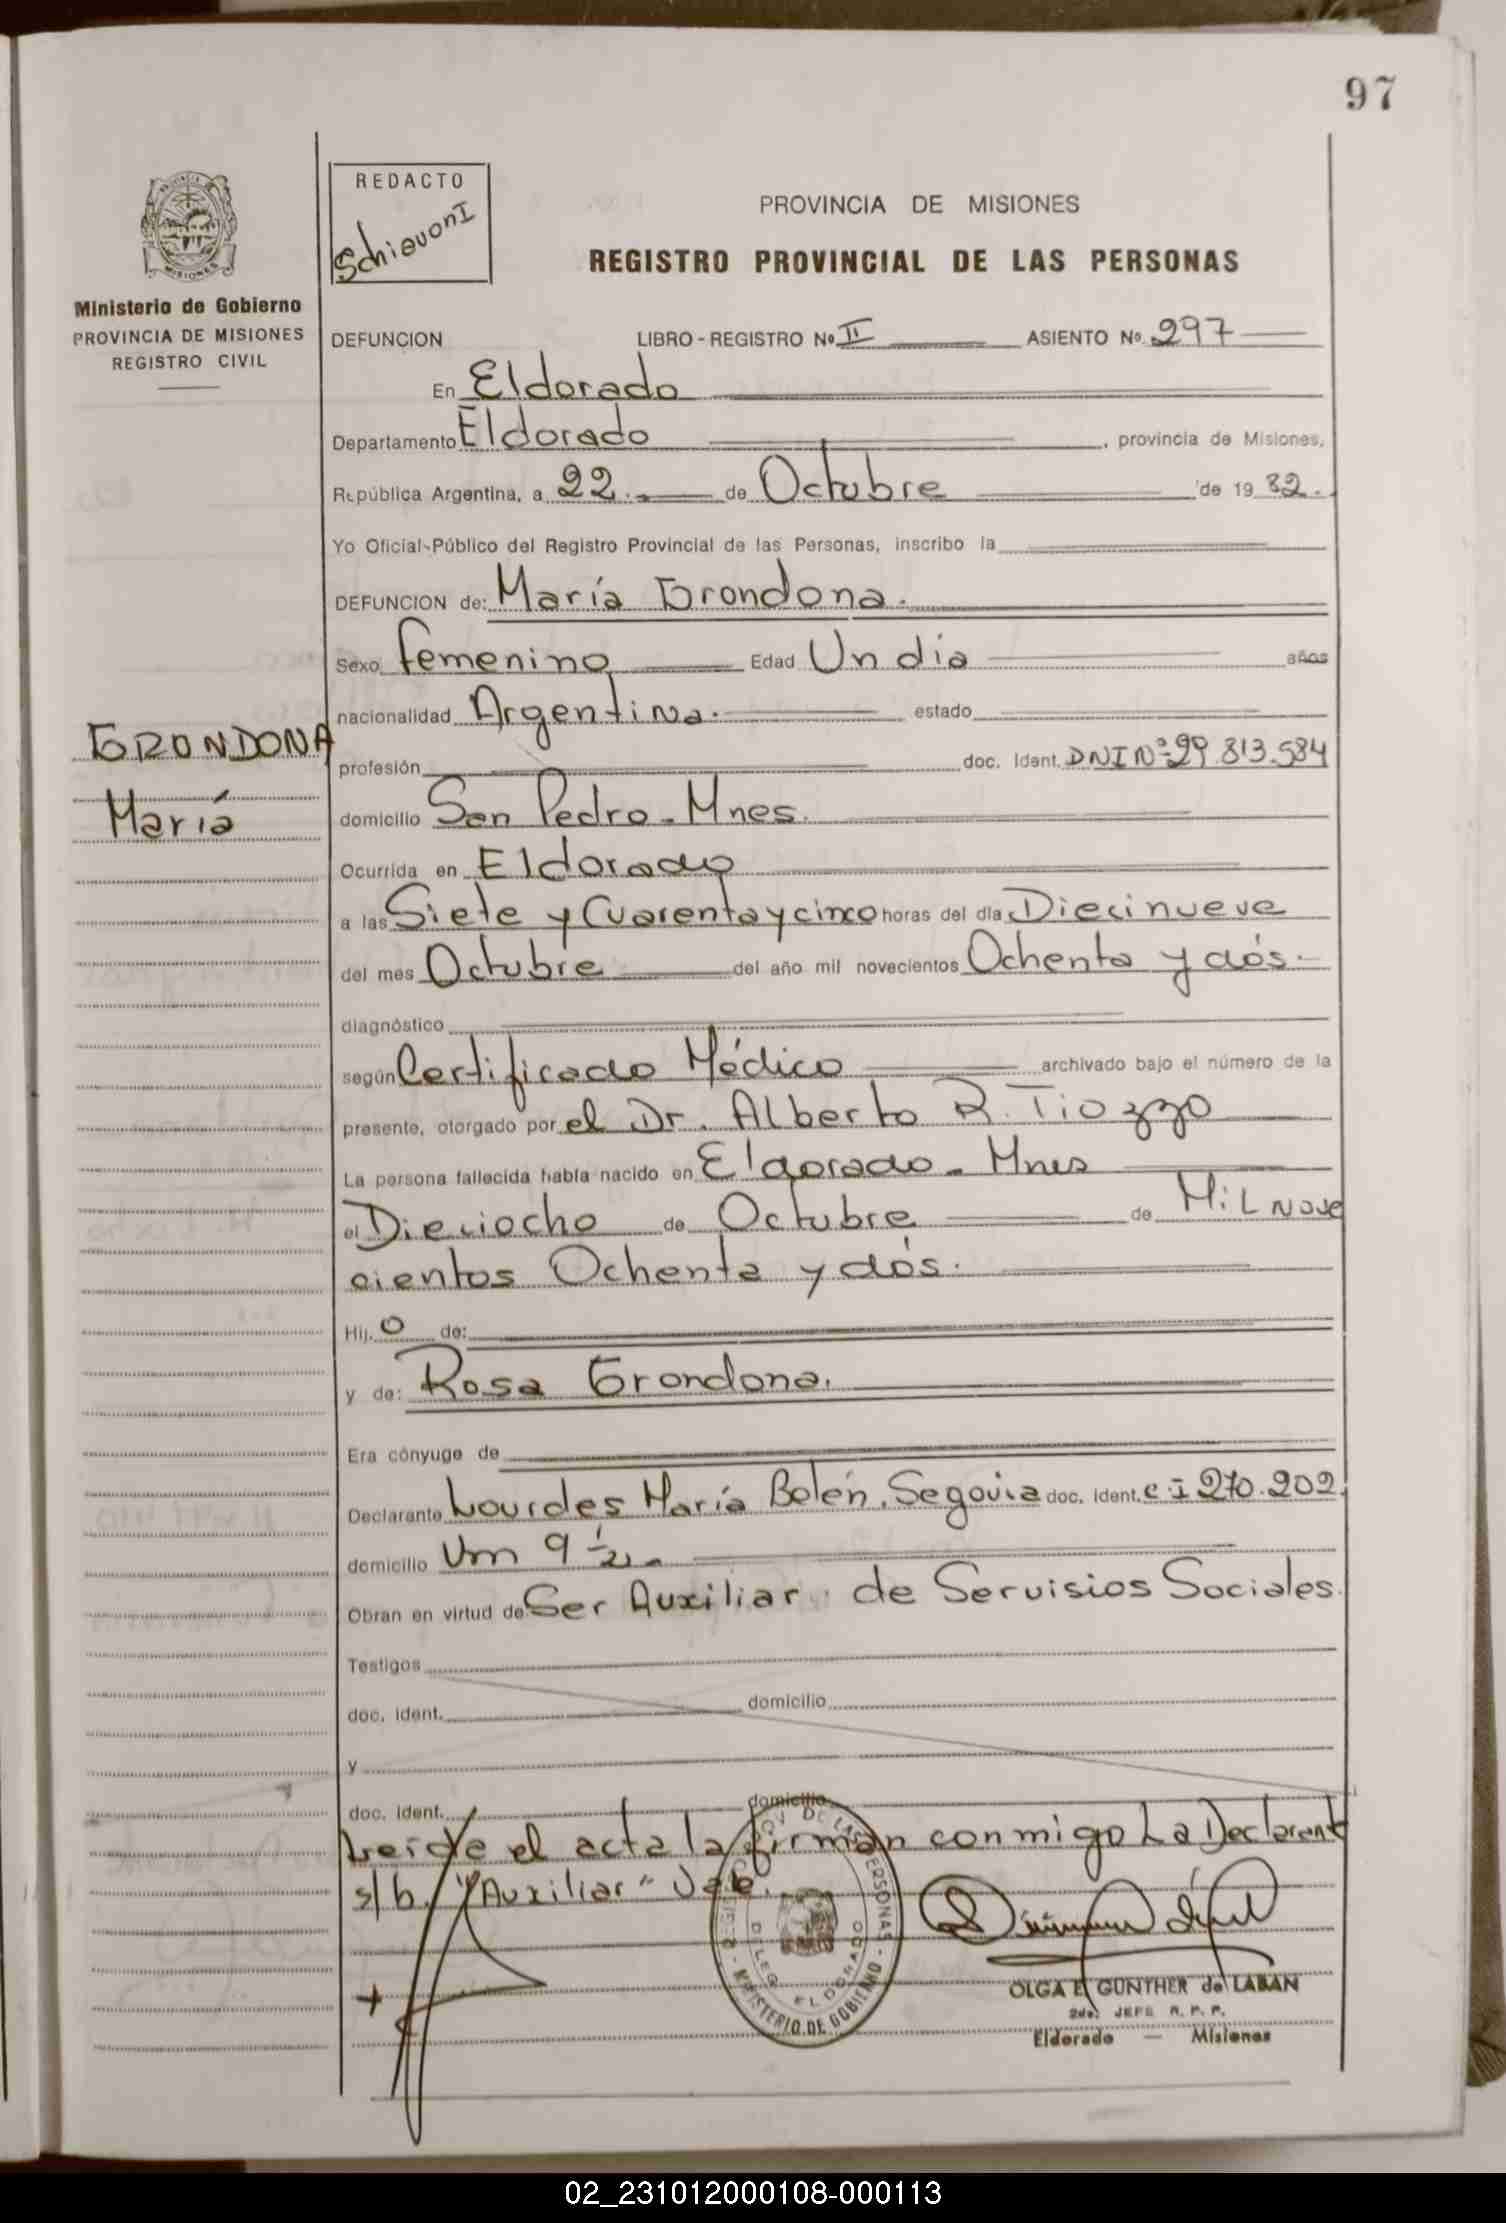 97
REDACTO
Schiavoni
PROVINCIA DE MISIONES
REGISTRO PROVINCIAL DE LAS PERSONAS
MISIONES
Ministerio de Gobierno
PROVINCIA DE MISIONES
REGISTRO CIVIL
DEFUNCION LIBRO - REGISTRO No II ASIENTO No 297
En Eldorado
Departamento Eldorado, provincia de Misiones,
República Argentina, a 22.- de Octubre de 19 82.
Yo Oficial Público del Registro Provincial de las Personas, inscribo la
DEFUNCION de: María Grondona.
Sexo femenino Edad Un dia años
nacionalidad Argentina. estado
GRONDONA
María
profesión doc. Ident. DNI Nº 29.813.584
domicilio San Pedro - Mnes.
Ocurrida en Eldorado
a las Siete y Cuarenta y cinco horas del día Diecinueve
del mes Octubre del año mil novecientos Ochenta y dós.-
diagnóstico
según Certificado Médico archivado bajo el número de la
presente, otorgado por el Dr. Alberto R. Tiozzo
La persona fallecida había nacido en Eldorado - Mnes
el Dieciocho de Octubre de Mil nove
cientos Ochenta y dós.
Hij. o de:
y de: Rosa Grondona.
Era cónyuge de
Declarante Lourdes María Belén, Segovia doc. ident. C I 270.202
domicilio Km 9 ½.
Obran en virtud de Ser Auxiliar de Servisios Sociales.
Testigos
doc. ident. domicilio
y
doc. ident. domicilio
Leida el acta la firman conmigo La Declarante
s/b. "Auxiliar" Vale.
MINISTERIO DE GOBIERNO
DELEG. ELDORADO
OLGA E. GUNTHER de LABAN
2do. JEFE R. P. P.
Eldorado — Misiones
02_231012000108-000113